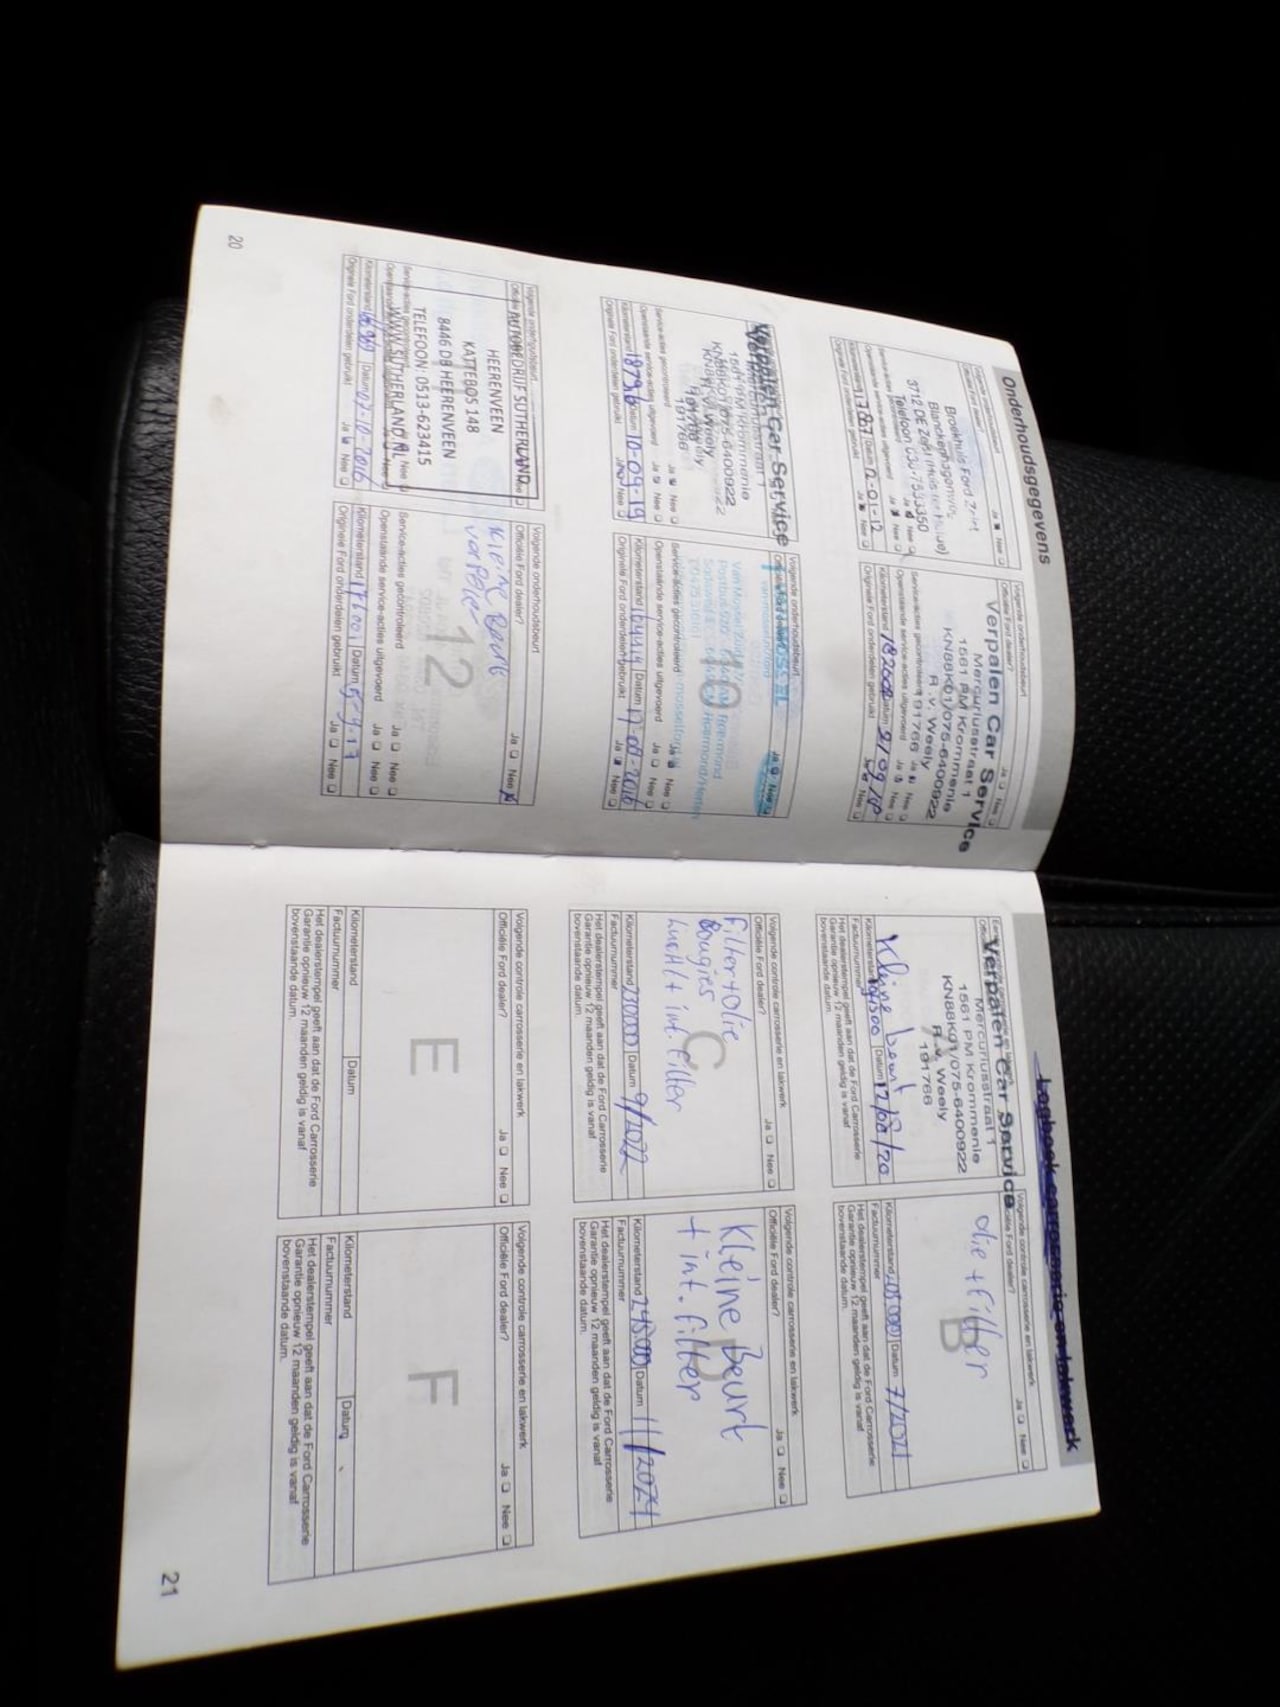 Onderhoudsgegevens
Volgende onderhoudsbeurt
Officiële Ford dealer? Ja Nee
Broekhuis Ford Zeist
3712 DE Zeist (Huis ter Heide)
Service-acties gecontroleerd Ja Nee
Openstaande service-acties uitgevoerd Ja Nee
Kilometerstand Datum 12-01-12
Originele Ford onderdelen gebruikt Ja Nee
Volgende onderhoudsbeurt
Officiële Ford dealer? Ja Nee
Verpalen Car Service
Mercuriusstraat 1
1561 PM Krommenie
KN88K01/075-6400922
R.v. Weely
191766
Service-acties gecontroleerd Ja Nee
Openstaande service-acties uitgevoerd Ja Nee
Kilometerstand Datum
Originele Ford onderdelen gebruikt Ja Nee
Verpalen Car Service
1561 PM Krommenie
KN88K01/075-6400922
R.v. Weely
191766
Service-acties gecontroleerd Ja Nee
Openstaande service-acties uitgevoerd Ja Nee
Kilometerstand Datum 10-09-19
Originele Ford onderdelen gebruikt Ja Nee
Volgende onderhoudsbeurt
Ja Nee
10
Service-acties gecontroleerd Ja Nee
Openstaande service-acties uitgevoerd Ja Nee
Kilometerstand Datum 17-08-2016
Originele Ford onderdelen gebruikt Ja Nee
Volgende onderhoudsbeurt
AUTOBEDRIJF SUTHERLAND
HEERENVEEN
KATTEBOS 148
8446 DB HEERENVEEN
TELEFOON: 0513-623415
WWW.SUTHERLAND.NL
Kilometerstand Datum 07-10-2016
Originele Ford onderdelen gebruikt Ja Nee
Volgende onderhoudsbeurt
Officiële Ford dealer? Ja Nee
Kleine Beurt
12
Service-acties gecontroleerd Ja Nee
Openstaande service-acties uitgevoerd Ja Nee
Kilometerstand 176001 Datum
Originele Ford onderdelen gebruikt Ja Nee
20
Logboek carrosserie en lakwerk
Verpalen Car Service
Mercuriusstraat 1
1561 PM Krommenie
KN88K01/075-6400922
R.v. Weely
191766
Kleine beurt
Kilometerstand Datum 12/08/20
Factuurnummer
Het dealerstempel geeft aan dat de Ford Carrosserie
Garantie opnieuw 12 maanden geldig is vanaf
bovenstaande datum.
Volgende controle carrosserie en lakwerk
Officiële Ford dealer? Ja Nee
olie + filter
B
Kilometerstand Datum 7/2021
Factuurnummer
Het dealerstempel geeft aan dat de Ford Carrosserie
Garantie opnieuw 12 maanden geldig is vanaf
bovenstaande datum.
Volgende controle carrosserie en lakwerk
Officiële Ford dealer? Ja Nee
filter+olie
Bougies
lucht/+ int. filter
C
Kilometerstand 230000 Datum 9/2022
Factuurnummer
Het dealerstempel geeft aan dat de Ford Carrosserie
Garantie opnieuw 12 maanden geldig is vanaf
bovenstaande datum.
Volgende controle carrosserie en lakwerk
Officiële Ford dealer? Ja Nee
Kleine Beurt
+ int. filter
D
Kilometerstand 245000 Datum 11/2024
Factuurnummer
Het dealerstempel geeft aan dat de Ford Carrosserie
Garantie opnieuw 12 maanden geldig is vanaf
bovenstaande datum.
Volgende controle carrosserie en lakwerk
Officiële Ford dealer? Ja Nee
E
Kilometerstand Datum
Factuurnummer
Het dealerstempel geeft aan dat de Ford Carrosserie
Garantie opnieuw 12 maanden geldig is vanaf
bovenstaande datum.
Volgende controle carrosserie en lakwerk
Officiële Ford dealer? Ja Nee
F
Kilometerstand Datum
Factuurnummer
Het dealerstempel geeft aan dat de Ford Carrosserie
Garantie opnieuw 12 maanden geldig is vanaf
bovenstaande datum.
21